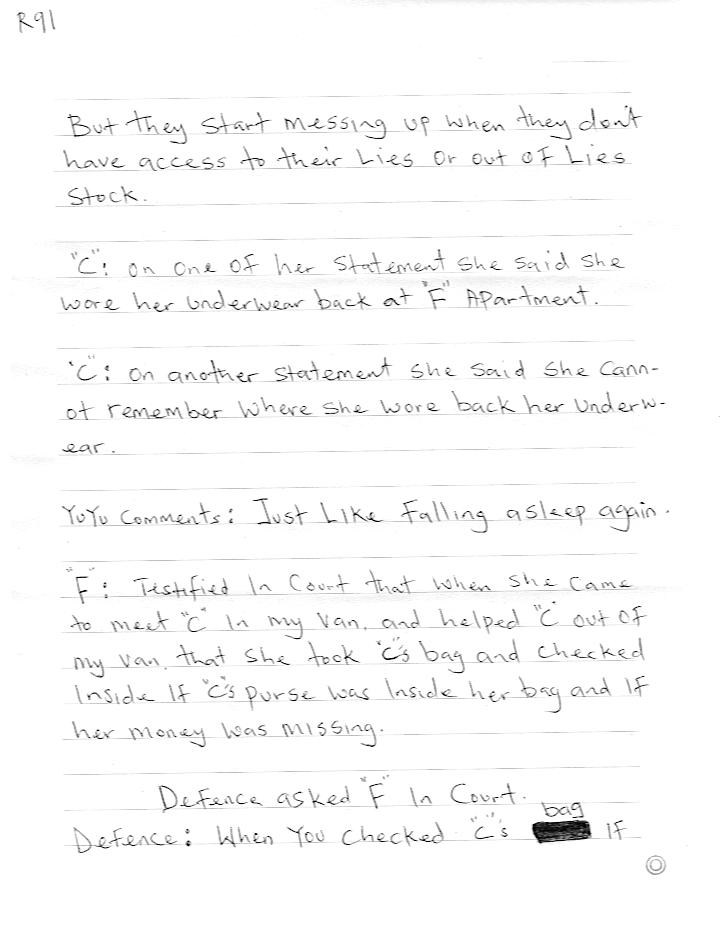 R91
But they start messing up when they don't
have access to their Lies or out of Lies
Stock.
"C": on one of her statement she said she
wore her underwear back at "F" Apartment.
"C": on another statement she said she cann-
ot remember where she wore back her underw-
ear.
YuYu Comments: Just Like Falling asleep again.
"F": Testified In Court that when she came
to meet "C" In my van, and helped "C" out of
my van, that she took "C"s bag and checked
Inside If "C"s purse was Inside her bag and If
her money was missing.
Defence asked "F" In Court.
bag
Defence: When You checked "C"s If